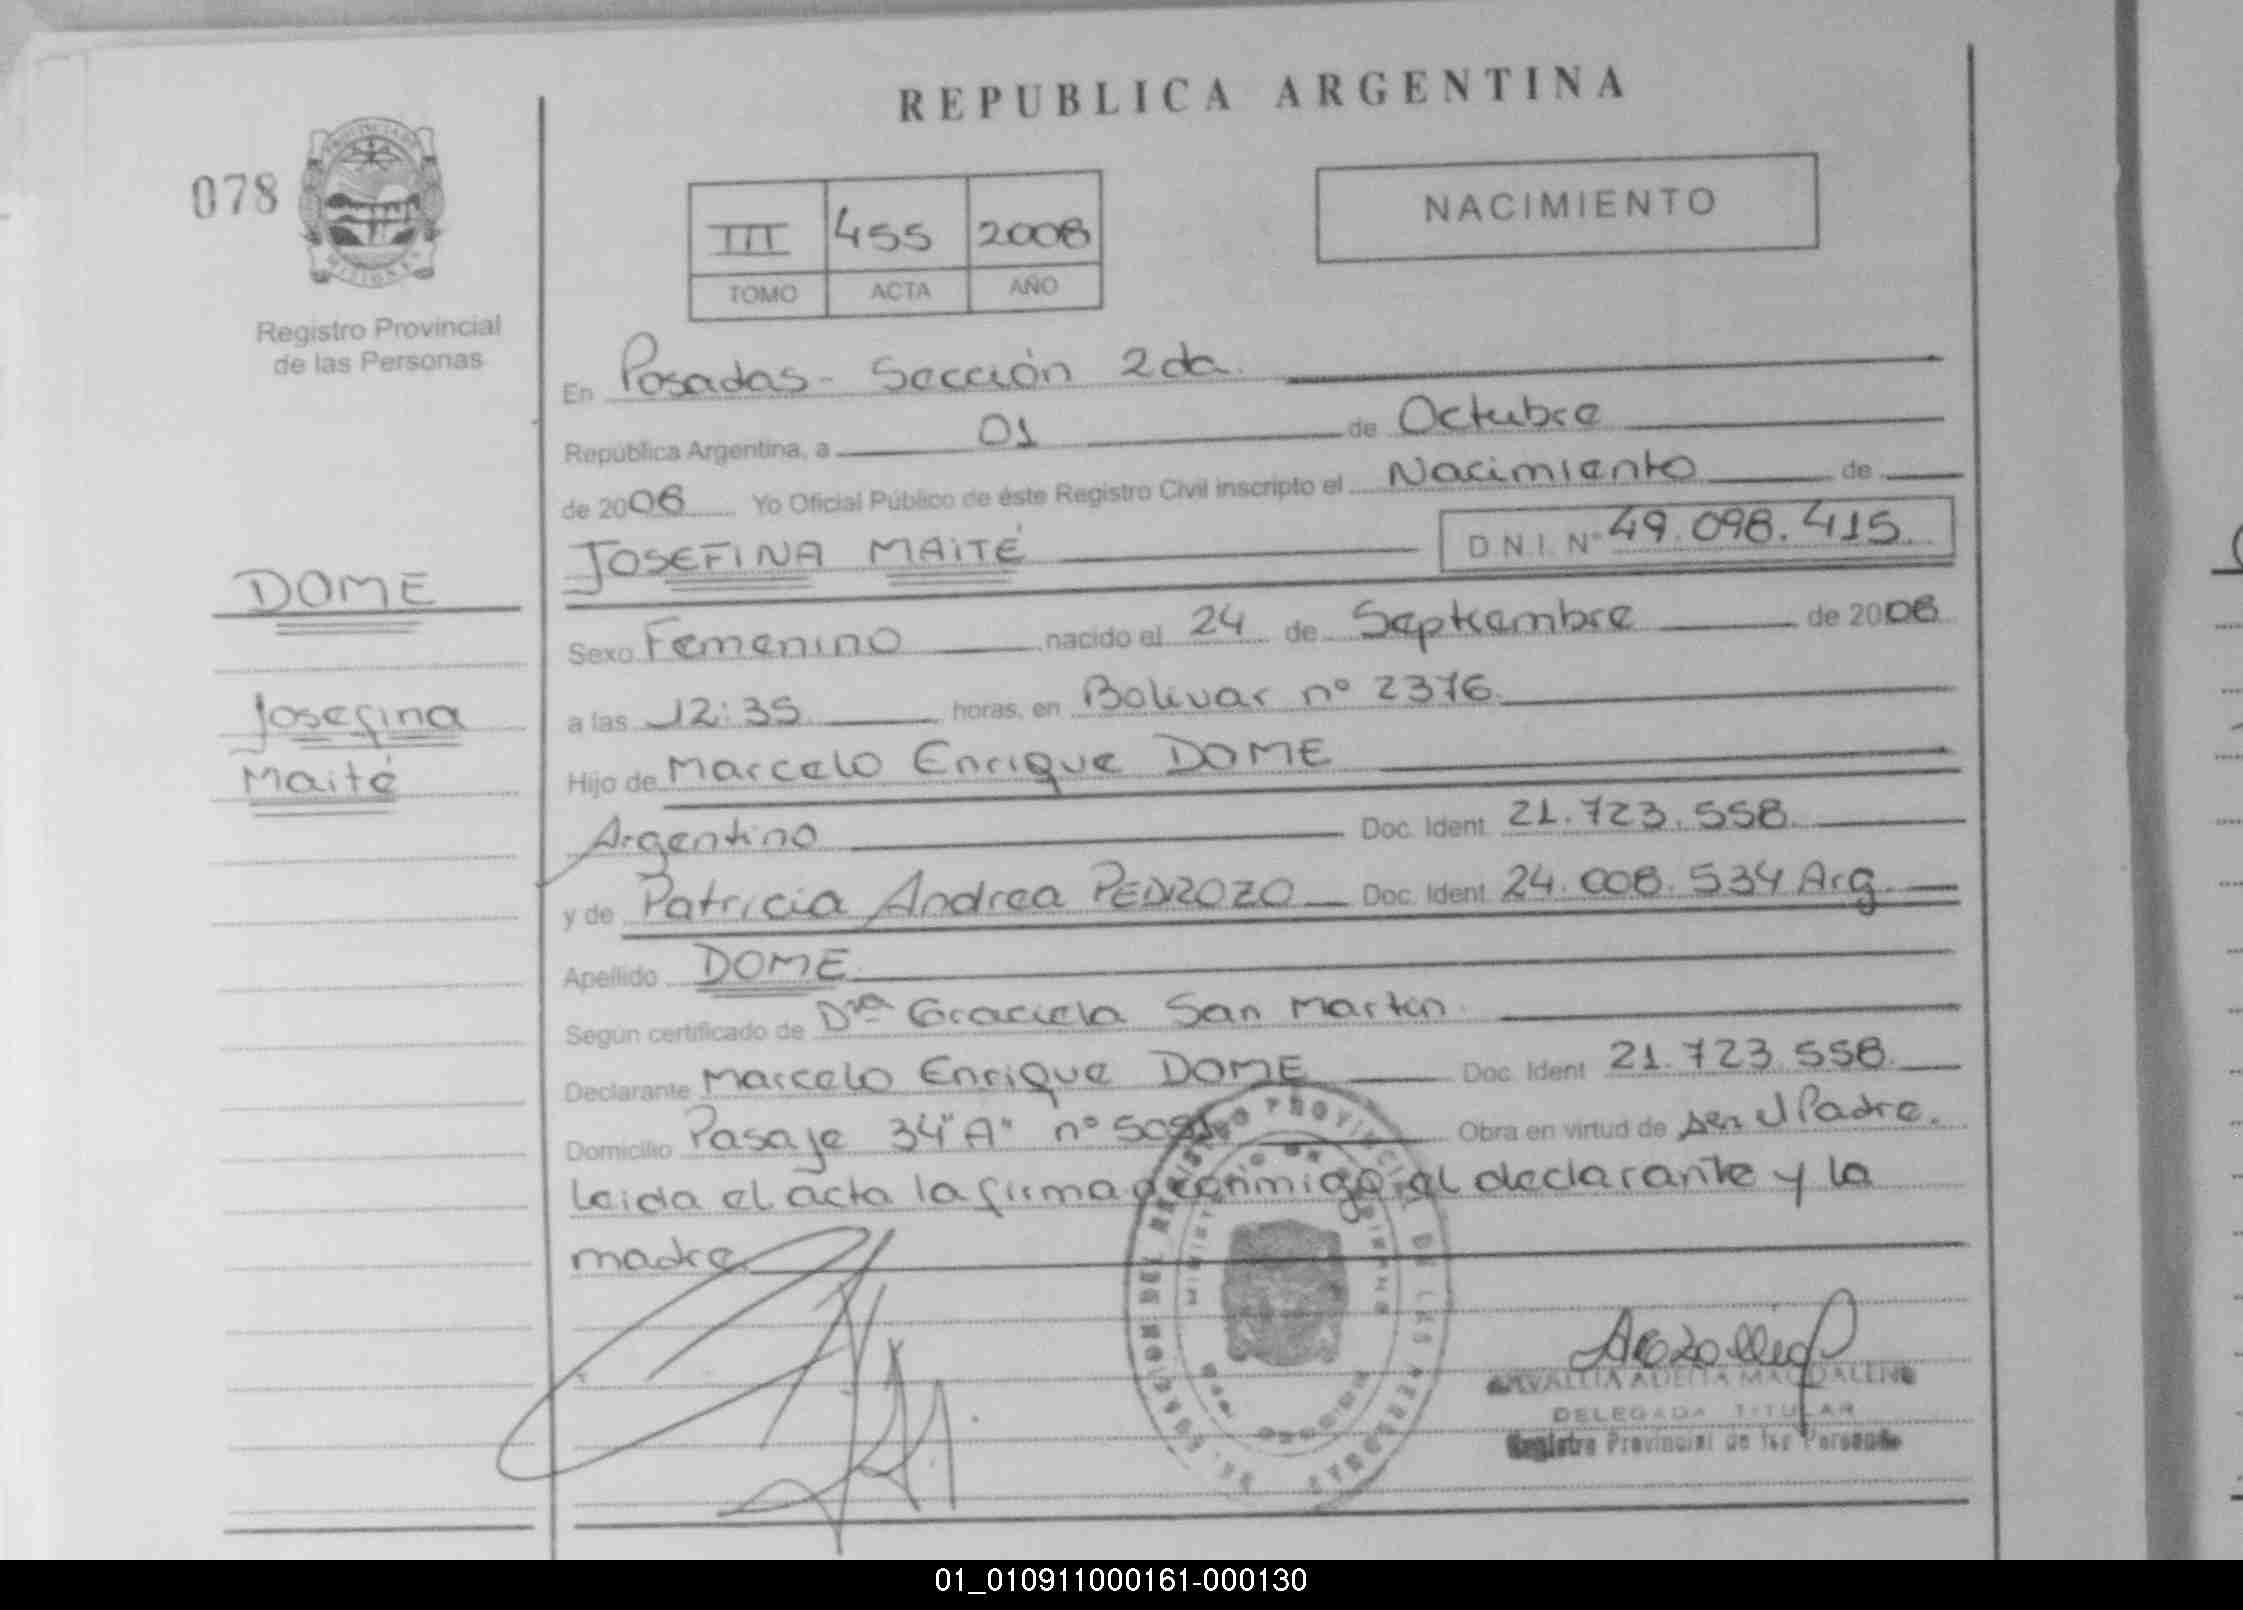 REPUBLICA ARGENTINA
078
PROVINCIA DE
MISIONES
Registro Provincial
de las Personas
III 455 2008
TOMO ACTA AÑO
NACIMIENTO
En Posadas - Sección 2da.
República Argentina, a 01 de Octubre
de 2008 Yo Oficial Público de éste Registro Civil inscripto el Nacimiento de
JOSEFINA MAITÉ D.N.I. Nº 49.098.415.
DOME
Sexo Femenino nacido el 24 de Septiembre de 2008
Josefina
a las 12:35 horas, en Bolivar nº 2376.
Maité
Hijo de Marcelo Enrique DOME
Argentino Doc. Ident. 21.723.558.
y de Patricia Andrea PEDROZO Doc. Ident. 24.008.534 Arg.
Apellido DOME
Según certificado de Dra Graciela San Martin.
Declarante Marcelo Enrique DOME Doc. Ident. 21.723.558.
Domicilio Pasaje 34 "A" nº Obra en virtud de ser el Padre.
Leida el acta la firma conmigo el declarante y la
madre.
REGISTRO PROVINCIAL DE LAS PERSONAS
ADELITA MAGDALENA
DELEGADA TITULAR
Registro Provincial de las Personas
01_010911000161-000130